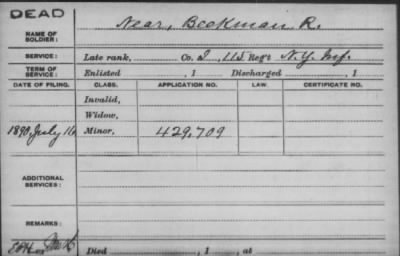 DEAD
NAME OF SOLDIER: Near, Beekman R.
SERVICE: Late rank, Co. I, 115 Reg't N.Y. Inf.
TERM OF SERVICE: Enlisted , 1 Discharged , 1
DATE OF FILING. CLASS. APPLICATION NO. LAW. CERTIFICATE NO.
Invalid,
Widow,
1890, July 16 Minor, 429,709
ADDITIONAL SERVICES:
REMARKS:
Died , 1 , at